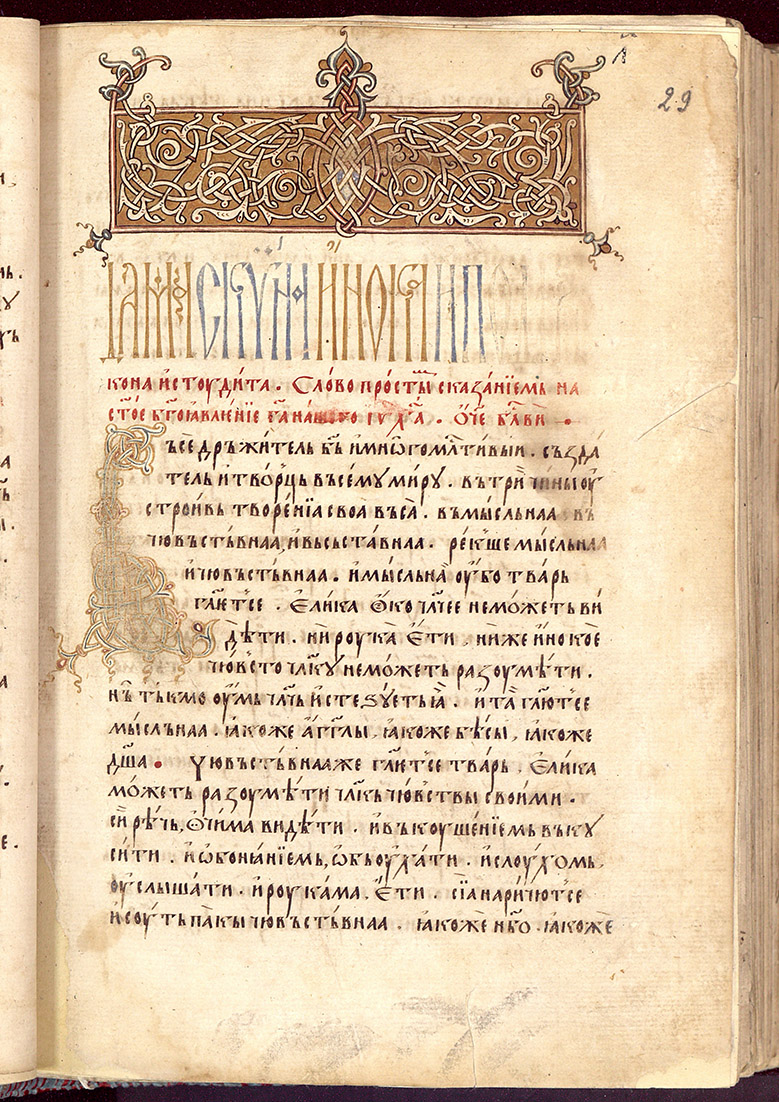 л҃
29
Дамаскѵна инока ипо
кона и҆стоудита . Сло́во про́стѡⷨ сказа́нїемь на
ст҃ое бг҃оꙗвле́нїе га҃ на́шего і҆ѵ҃ ха҃ . ѻ҆́ч҃е бл҃ви .
въседръжи́тель бъ҃ и҆ мнѡ́гомлⷭ҇тивыи . създа́
тель и҆ тво́рць въсе́му миру . въ три̑ чины оу҆
строивь творе́нїа своа̀ въса̀ . въ мы́сльнаа въ
чювъсть́внаа, и҆ въсьста́внаа . ре́кꙋше мы́сльнаа
и҆ чювъсть́внаа . и҆ мы́сльнаꙗ оу҆́бо тварь
гл҃ет се . е҆ли́ка ѻ҆́ко чл҃чее немо́жеть ви
дѣти . ни роука̀ е҆́ти . ни́же и҆́но коѐ
чю́вьство чл҃кꙋ не може́ть разоумѣ́ти .
нъ̀ тъ́кмо оу҆́мь чл҃чь и҆стеѕуеть ꙗ̀ . и҆ та̀ гл҃ют се
мы́слънаа . ꙗ҆́коже а҆́гг҃лы, ꙗ҆́коже бѣ́сы, ꙗ҆́коже
дш҃а . чювъсть́внаа же гл҃ет се тва́рь . е҆ли́ка
мо́жеть разоумѣ́ти чл҃къ чю́вствы свои́ми .
си̑ рѣ́чь, ѻ҆чи́ма ви́дѣти . и҆ въкоуше́нїемь въкꙋ
си́ти . и҆ ѡ҆боня́нїемь, ѡ҆бъоуха́ти . и҆ слоу́хомь,
оу҆слы́шати . и҆ роука́ма . е҆́ти . сїа̀ нари́чют се
и҆ соу́ть па́кы чювъсть́внаа . ꙗ҆́коже нб҃о . ꙗ҆́коже